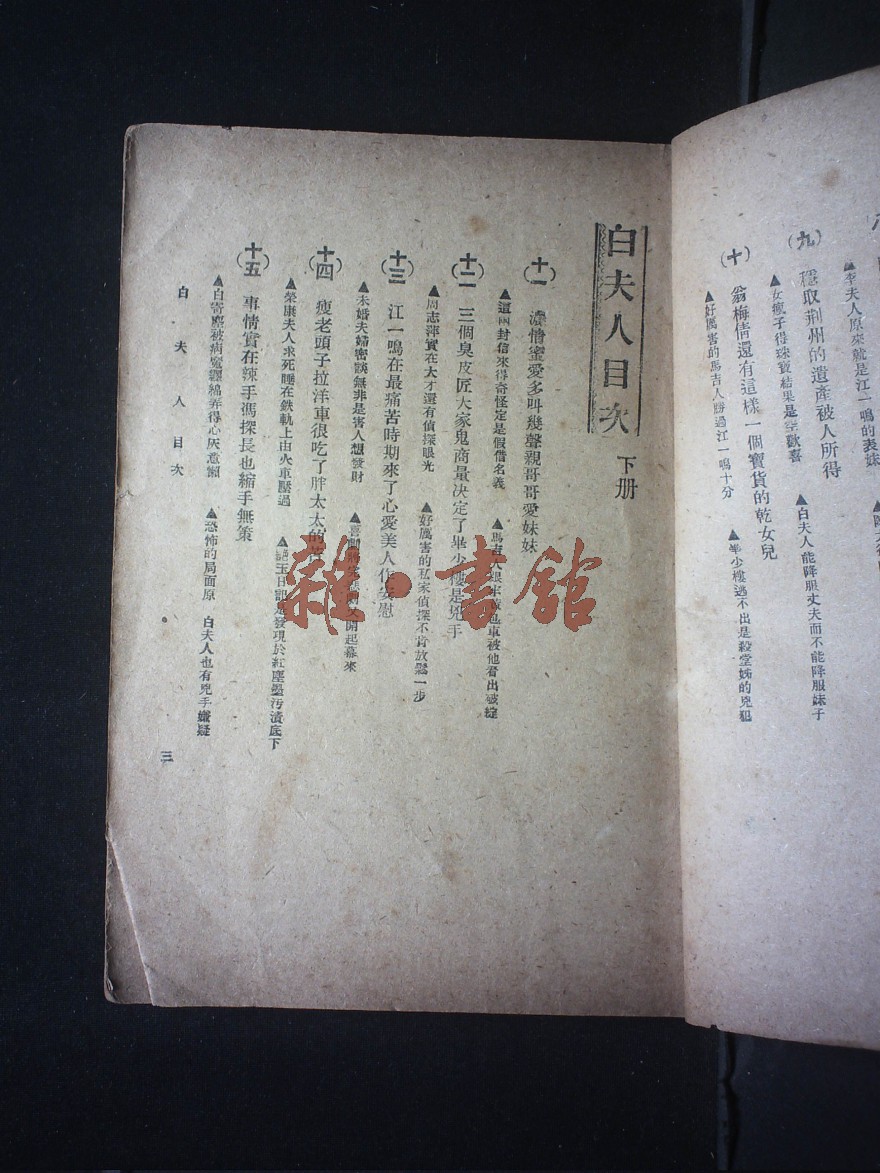 李夫人原來就是江一鳴的表妹
(九) 穩取荆州的遺產被人所得
▲女瘦子得珠寶結果是空歡喜 ▲白夫人能降服丈夫而不能降服妹子
(十) 翁梅倩還有這樣一個寶貨的乾女兒
▲好厲害的馬吉人勝過江一鳴十分 ▲畢少樓逃不出是殺堂姊的兇犯
白夫人目次 下册
(十一) 濃情蜜愛多叫幾聲親哥哥愛妹妹
▲這兩封信來得奇怪定是假借名義 ▲馬吉人車被他看出破綻
(十二) 三個臭皮匠大家鬼商量決定了畢少樓是兇手
▲周志萍實在大才還有偵探眼光 ▲好厲害的私家偵探不肯放鬆一步
(十三) 江一鳴在最痛苦時期來了心愛美人作安慰
▲未婚夫婦密談無非是害人想發財 ▲喜開起幕來
(十四) 瘦老頭子拉洋車很吃了胖太太的苦
▲榮康夫人求死睡在鉄軌上由火車壓過 ▲玉日記是發現於紅塵墨污漬底下
(十五) 事情實在辣手馮探長也縮手無策
▲白寄塵被病魔纏綿弄得心灰意懶 ▲恐怖的局面原 白夫人也有兇手嫌疑
白夫人目次
三
雜·書館